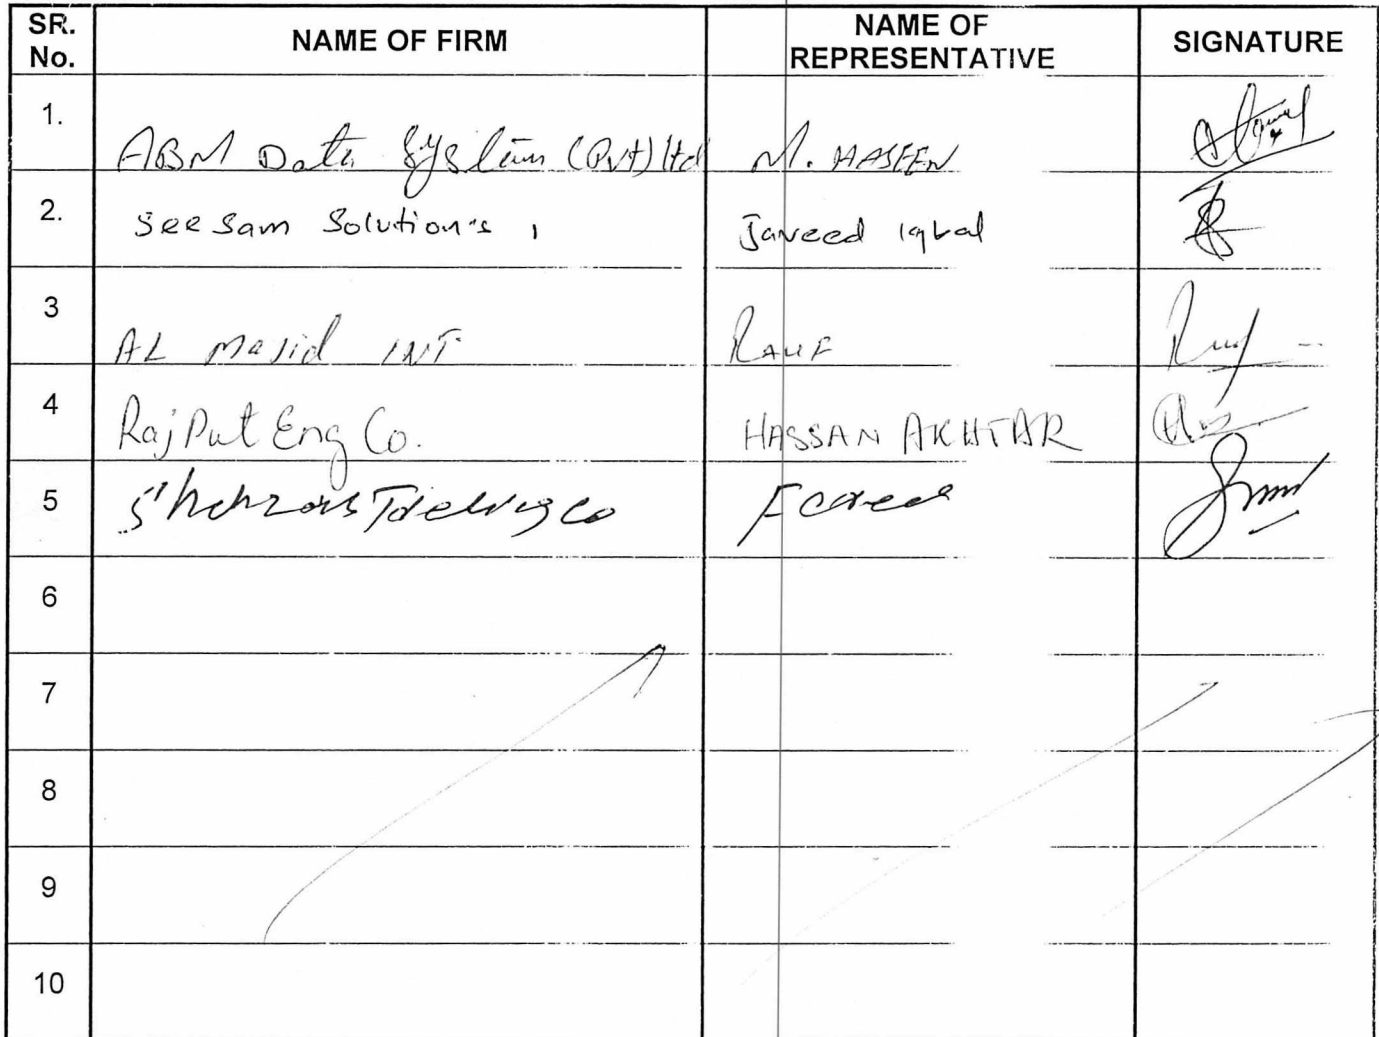 SR. No. NAME OF FIRM NAME OF REPRESENTATIVE SIGNATURE
1. ABM Data System (Pvt) ltd M. HASEEN
2. SeeSam Solution's , Javeed iqbal
3 AL Masid INT RAUF
4 RajPut Eng Co. HASSAN AKHTAR
5 co
6
7
8
9
10